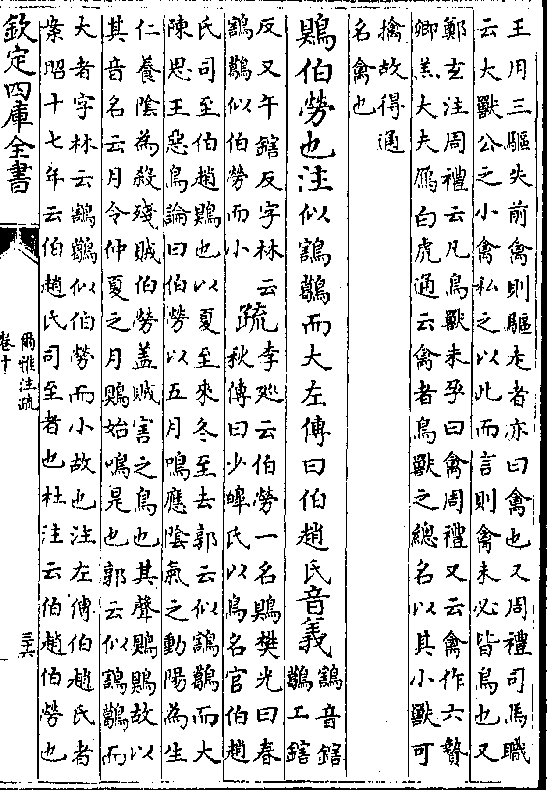 王用三驅失前禽則驅走者亦曰禽也又周禮司馬職
云大獸公之小禽私之以此而言則禽未必皆鳥也又
鄭玄注周禮云凡鳥獸未孕曰禽周禮又云禽作六贄
卿羔大夫鴈白虎通云禽者鳥獸之總名以其小獸可
擒故得通
名禽也
鶪伯勞也注似鶷鶡而大左傳曰伯趙氏音義
鶷音鎋
鶡工鎋
反又午鎋反字林云
鶷鶡似伯勞而小
疏
李廵云伯勞一名鶪樊光曰春
秋傳曰少皥氏以鳥名官伯趙
氏司至伯趙鶪也以夏至來冬至去郭云似鶷鶡而大
陳思王惡鳥論曰伯勞以五月鳴應陰氣之動陽為生
仁養陰為殺殘賊伯勞蓋賊害之鳥也其聲鶪鶪故以
其音名云月令仲夏之月鶪始鳴是也郭云似鶷鶡而
大者字林云鶷鶡似伯勞而小故也注左傳伯趙氏者
案昭十七年云伯趙氏司至者也杜注云伯趙伯勞也
欽定四庫全書
爾雅注疏
卷十
三六